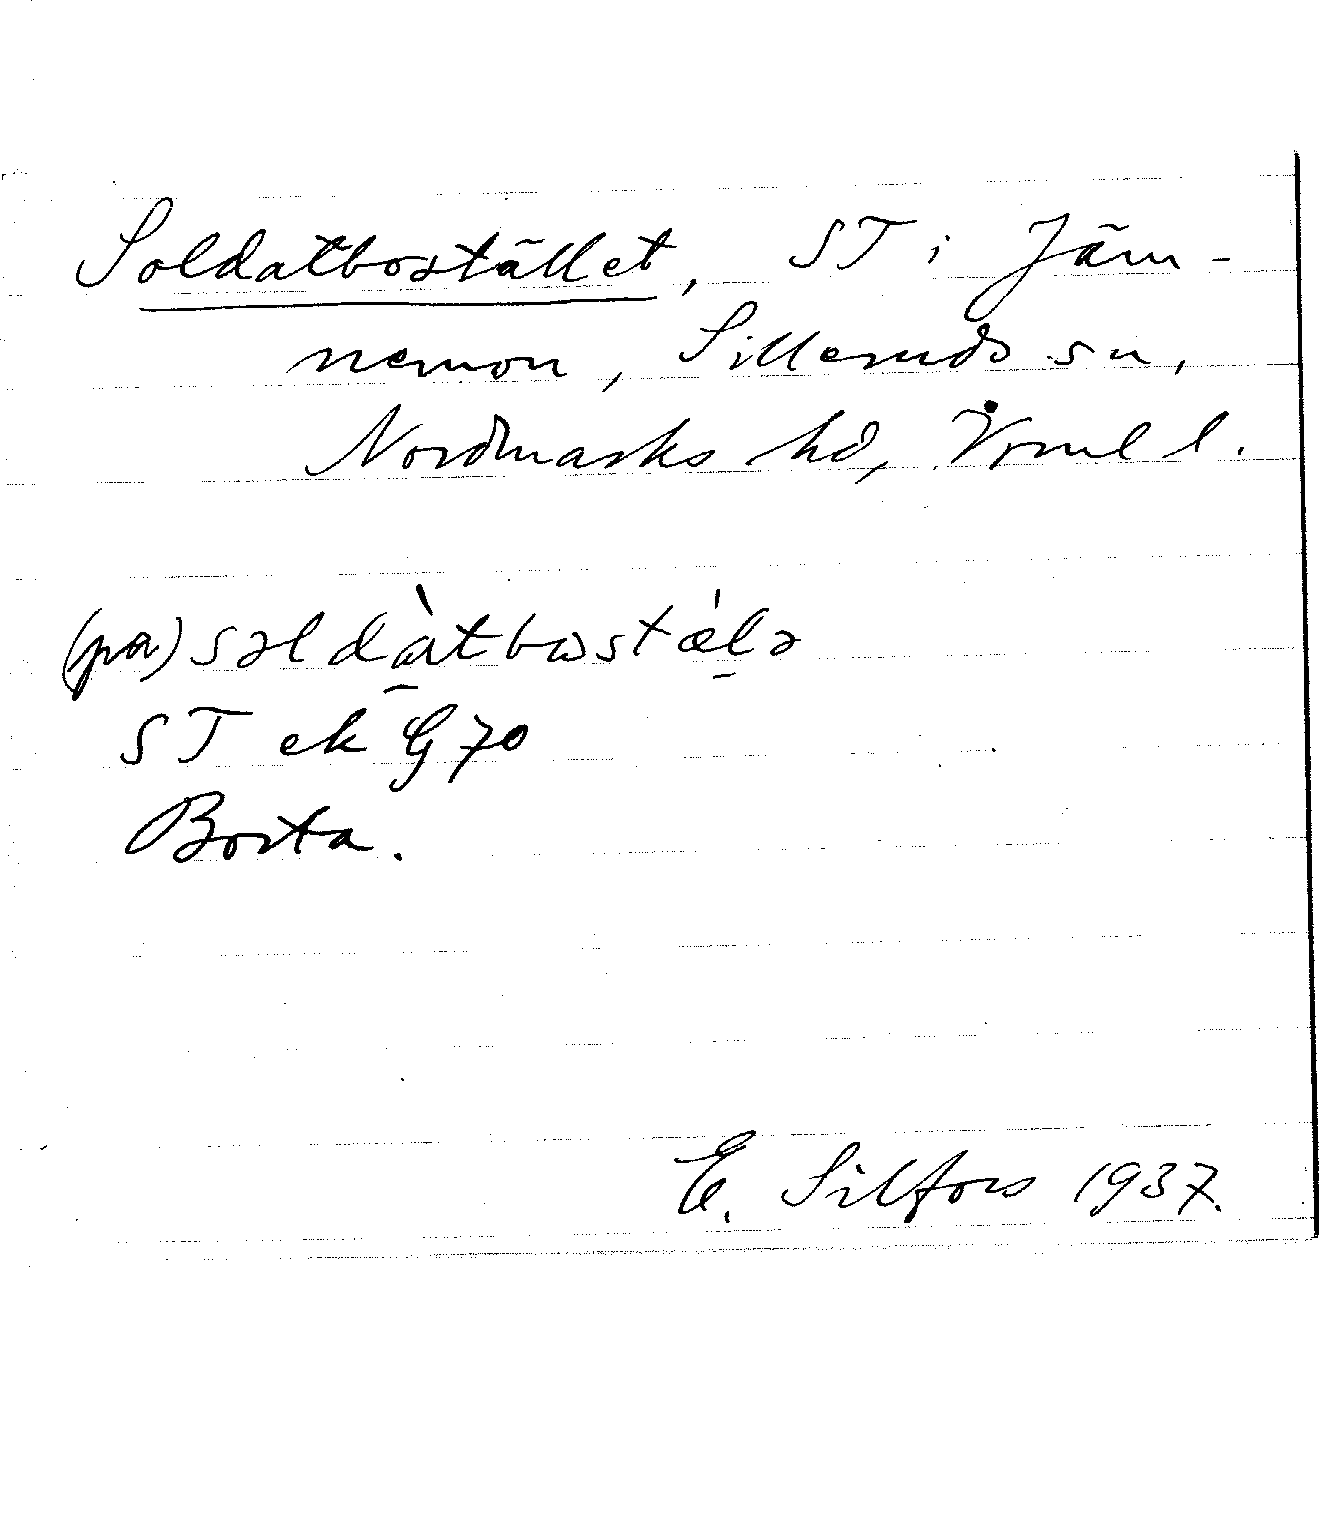 Soldatbostället, ST i Jäm-
nemon, Silleruds sn,
Nordmarks hd, Vrml l.
(pa) səldàtbωstǽlə
ST ek G 70
Borta.
E. Silfors 1937.